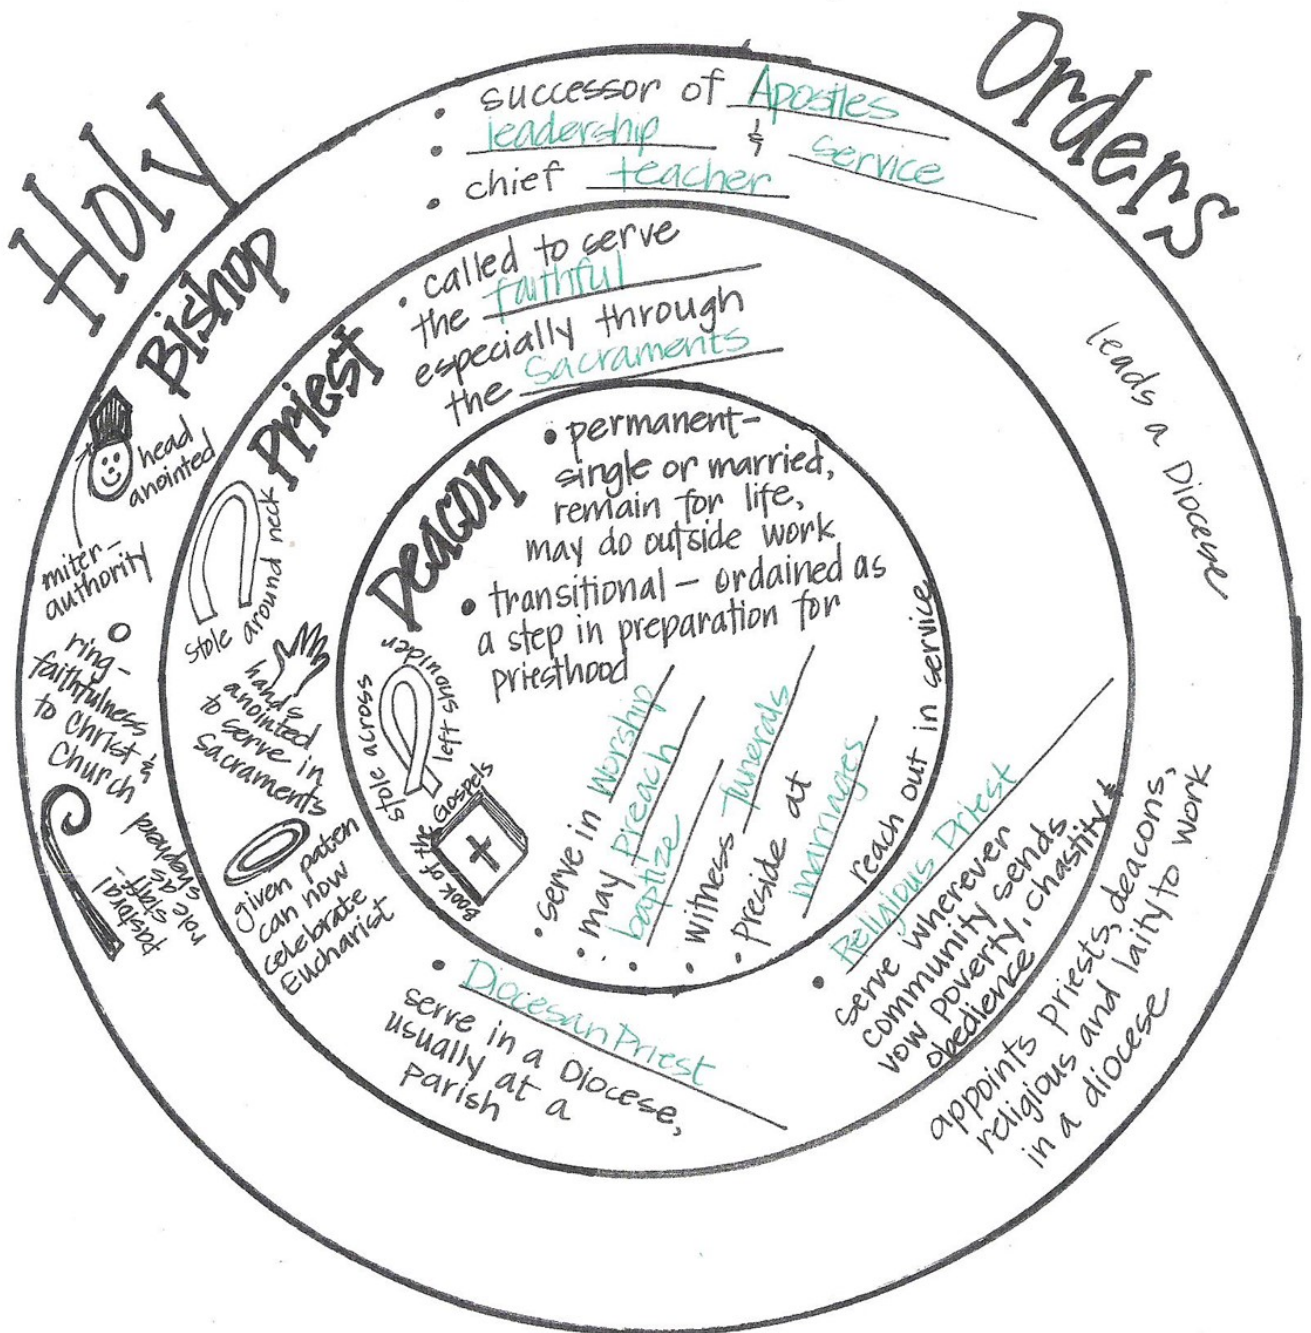 Holy
Orders
Bishop
• successor of Apostles
• leadership & service
• chief teacher
leads a Diocese
appoints priests, deacons,
religious and laity to work
in a diocese
head
anointed
miter-
authority
ring-
faithfulness
to Christ &
Church
pastoral
staff-
role as
shepherd
Priest
• called to serve
the faithful
especially through
the Sacraments
stole around neck
hands
anointed
to serve in
Sacraments
given paten
can now
celebrate
Eucharist
• Diocesan Priest
serve in a Diocese,
usually at a
parish
• Religious Priest
serve wherever
community sends
vow poverty, chastity &
obedience
Deacon
• permanent-
single or married,
remain for life,
may do outside work
• transitional - ordained as
a step in preparation for
priesthood
stole across
left shoulder
Book of the Gospels
• serve in Worship
• may preach
• baptize
• witness funerals
• preside at
marriages
reach out in service